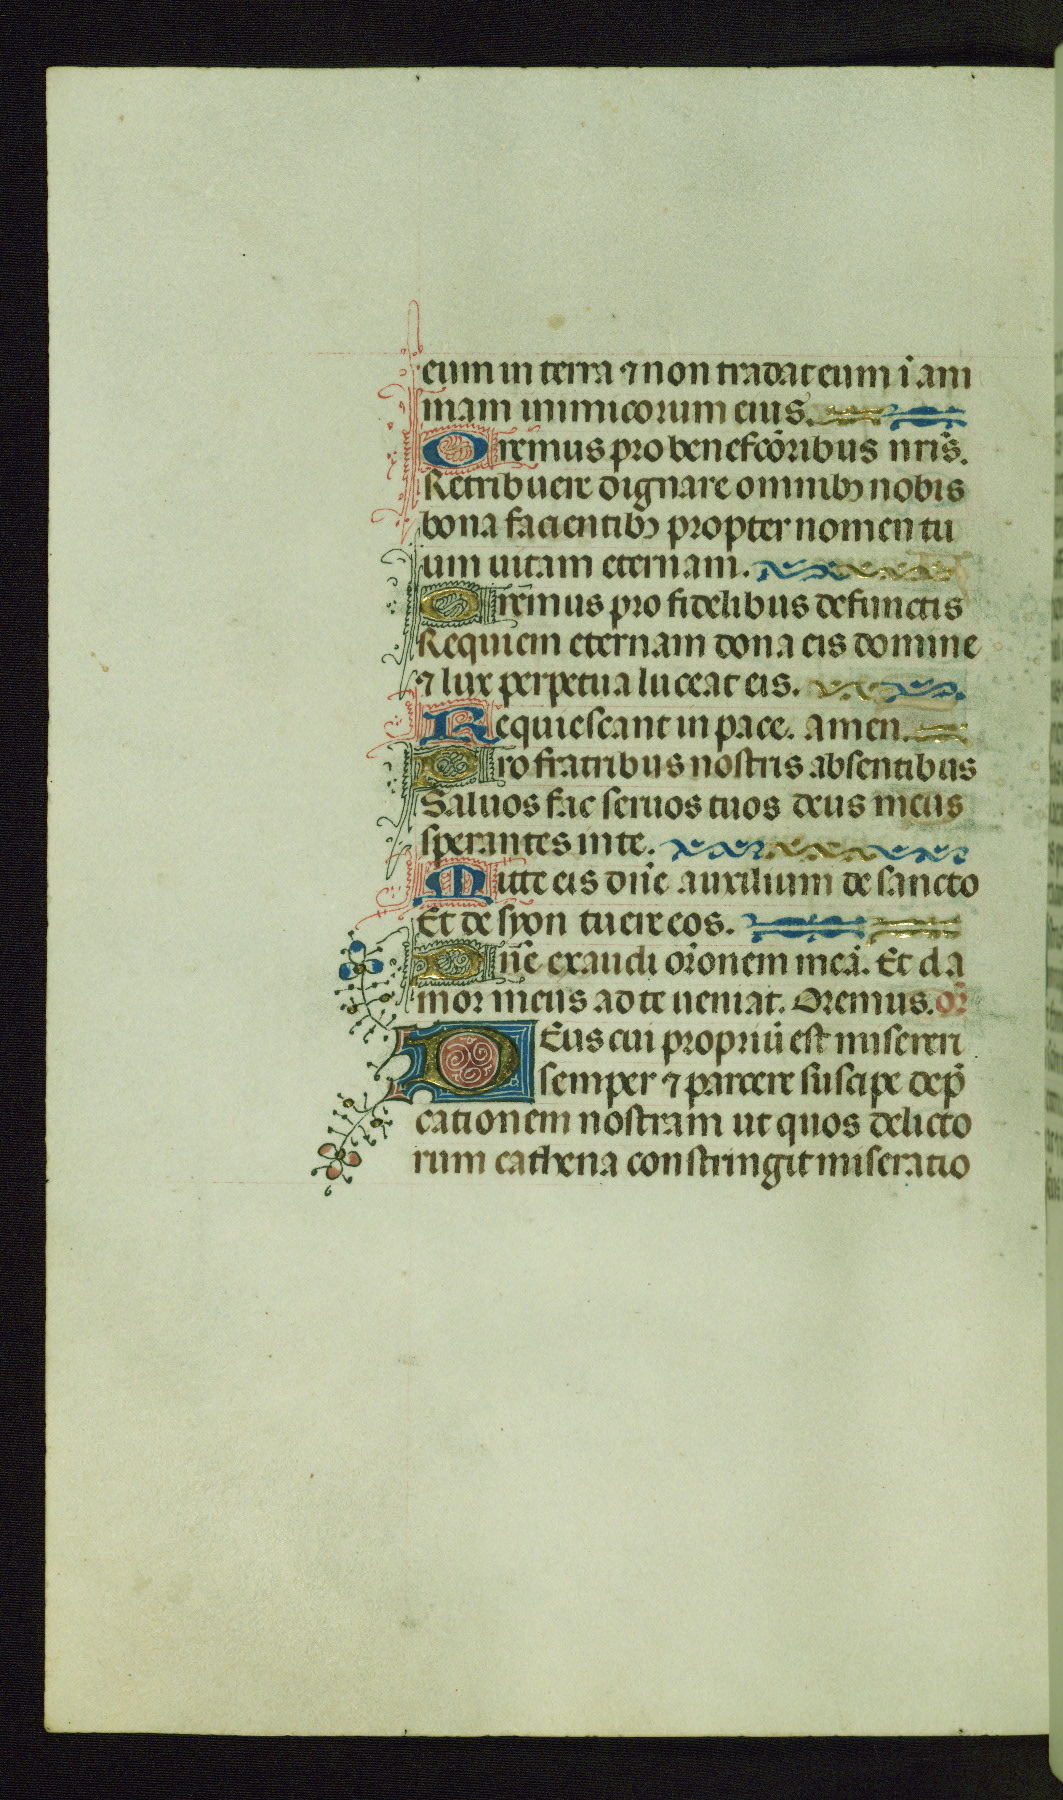 eum in terra ⁊ non tradat eum ī ani
mam inimicorum eius.
Oremus pro benefcōribus nr̄is.
Retribuere dignare omnibꝫ nobis
bona facientibꝫ propter nomen tu
um uitam eternam.
Oremus pro fidelibus defunctis
Requiem eternam dona eis domine
⁊ lux perpetua luceat eis.
Requiescant in pace. amen.
Pro fratribus nostris absentibus
Saluos fac seruos tuos deus meus
sperantes in te.
Mitte eis dn̄e auxilium de sancto
Et de syon tuere eos.
Dn̄e exaudi or̄onem meā. Et cla
mor meus ad te ueniat. Oremus. or̄
Deus cui propriū est misereri
semper ⁊ parcere suscipe dep̄
cationem nostram ut quos delicto
rum cathena constringit miseratio